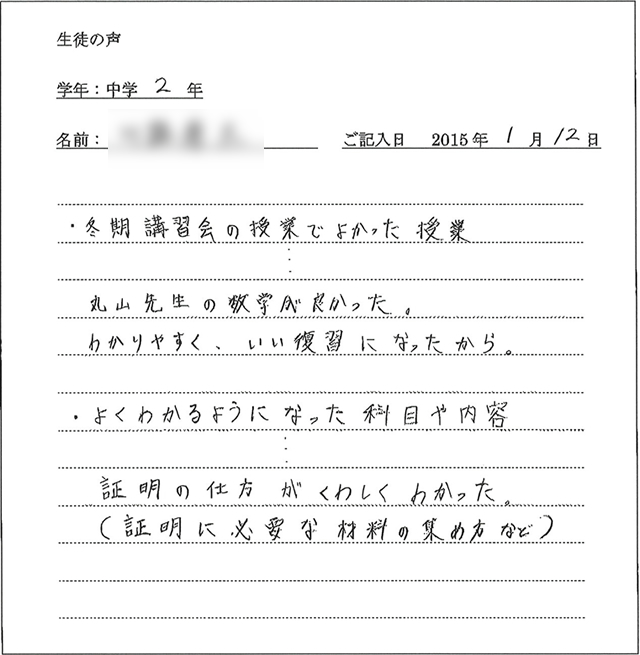 生徒の声
学年：中学 2 年
名前： ご記入日 2015年 1 月 12 日
・冬期講習会の授業でよかった授業
⋮
丸山先生の数学が良かった。
わかりやすく、いい復習になったから。
・よくわかるようになった科目や内容
⋮
証明の仕方がくわしくわかった。
（証明に必要な材料の集め方など）